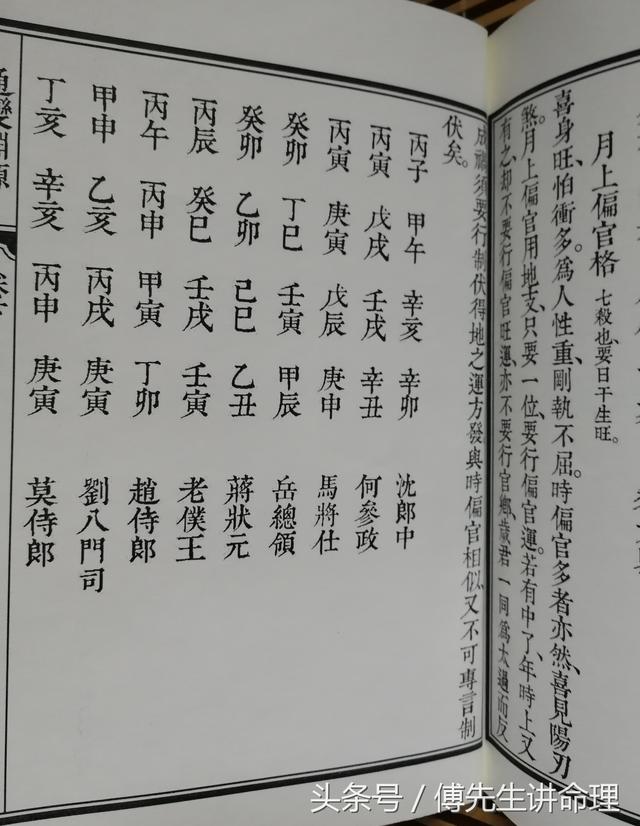 月上偏官格 七殺也、要日干生旺。
喜身旺、怕衝多。爲人性重、剛執不屈。時偏官多者亦然、喜見陽刃
煞。月上偏官用地支、只要一位、要行偏官運。若有中了、年時上又
有之、却不要行偏官旺運、亦不要行官鄉、歲君一同、爲太過而反
成禍、須要行制伏得地之運方發、與時偏官相似、又不可專言制
伏矣。
丙子 甲午 辛亥 辛卯 沈郎中
丙寅 戊戌 壬戌 辛丑 何參政
丙寅 庚寅 戊辰 庚申 馬將仕
癸卯 丁巳 壬寅 甲辰 岳總領
癸卯 乙卯 己巳 乙丑 蔣狀元
丙辰 癸巳 壬戌 壬寅 老僕王
丙午 丙申 甲寅 丁卯 趙侍郎
甲申 乙亥 丙戌 庚寅 劉八門司
丁亥 辛亥 丙申 庚寅 莫侍郎
通變淵源
头条号 / 傅先生讲命理